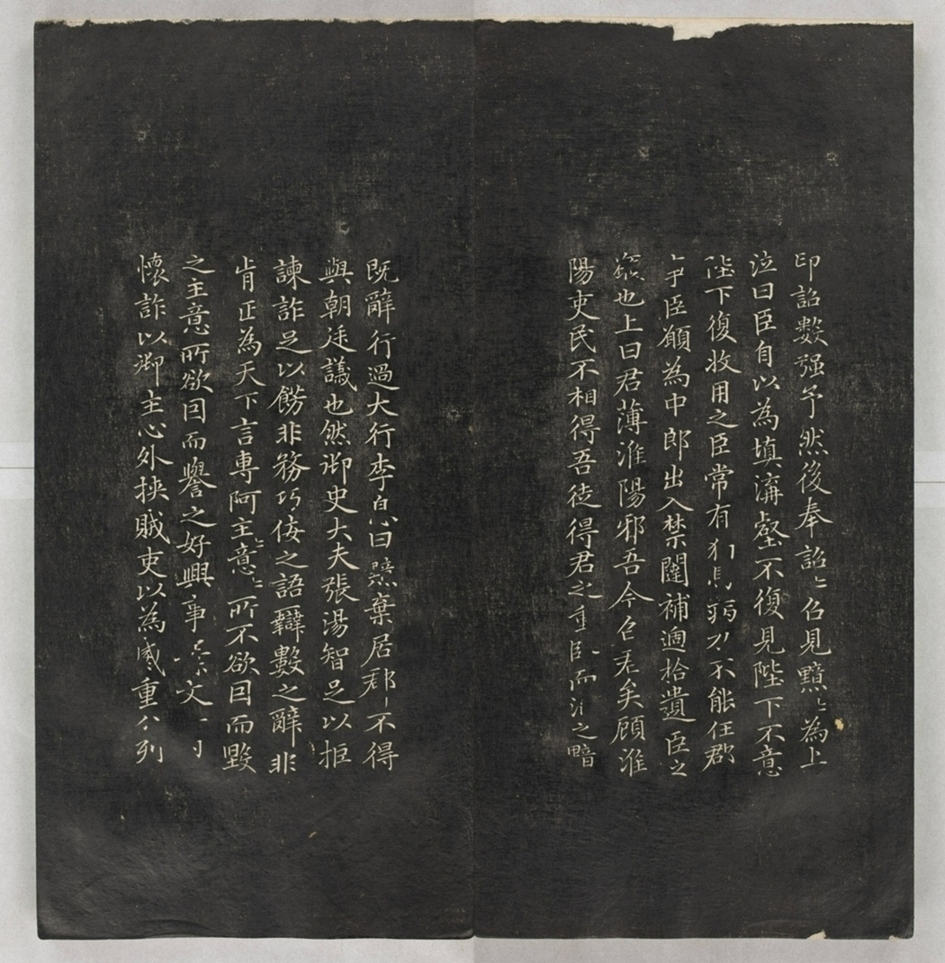 印詔數强予然後奉詔〻召見黯〻為上
泣曰臣自以為填溝壑不復見陛下不意
陛下復收用之臣常有狗馬病力不能任郡
事臣願為中郎出入禁闥補過拾遺臣之
願也上曰君薄淮陽邪吾今召君矣顧淮
陽吏民不相得吾徒得君之重臥而治之黯
既辭行過大行李息曰黯棄居郡不得
與朝廷議也然御史大夫張湯智足以拒
諫詐足以飾非務巧佞之語辯數之辭非
肯正為天下言專阿主意〻所不欲因而毀
之主意所欲因而譽之好興事文
懷詐以御主心外挾賊吏以為威重公列